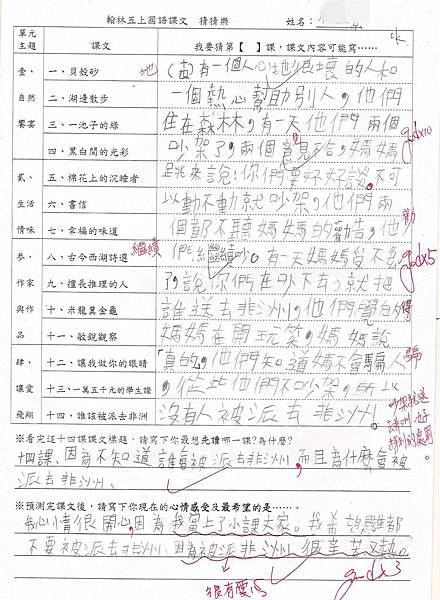 翰林五上國語課文 猜猜樂 姓名：
單元主題 課文 我要猜第【 】課，課文內容可能寫……
壹、自然饗宴
一、貝殼砂
二、湖邊散步
三、一池子的綠
四、黑白間的光彩
貳、生活情味
五、棉花上的沉睡者
六、書信
七、幸福的味道
參、作家與作品
八、古今西湖詩選
九、擅長推理的人
十、米龍巽金龜
十一、敏銳觀察
肆、讓愛飛翔
十二、讓我做你的眼睛
十三、一萬五千元的學生證
十四、誰該被派去非洲
(古)有一個人心地很壞的人和
一個熱心幫助別人，他們
住在森林，有一天他們兩個
吵架了，兩個意見不合，媽媽
跳來說：你們要好好談，不可
以動不動就吵架，他們兩
個都不聽媽媽的勸告，他
們繼續吵。有一天媽媽受不
了，說你們在吵下去，就把
誰送去非洲，他們覺的
媽媽在開玩笑，媽媽說
真的，他們知道媽不會騙人
，從此他們不吵架，所以
沒有人被派去非洲。
地
good x10
勸
繼續
good x5
得
騙
吵架就送
非洲，好
特別的處罰。
※看完這十四課課文標題，請寫下你最想先讀哪一課？為什麼？
十四課、因為不知道誰會被派去非洲，而且為什麼會被
派去非洲。
※預測完課文後，請寫下你現在的心情感受及最希望的是……。
我心情很開心，因為我當上了小課大家。我希望誰都
不要被派去非洲、因為被派非洲很辛苦又熱。
很有愛心
good x3